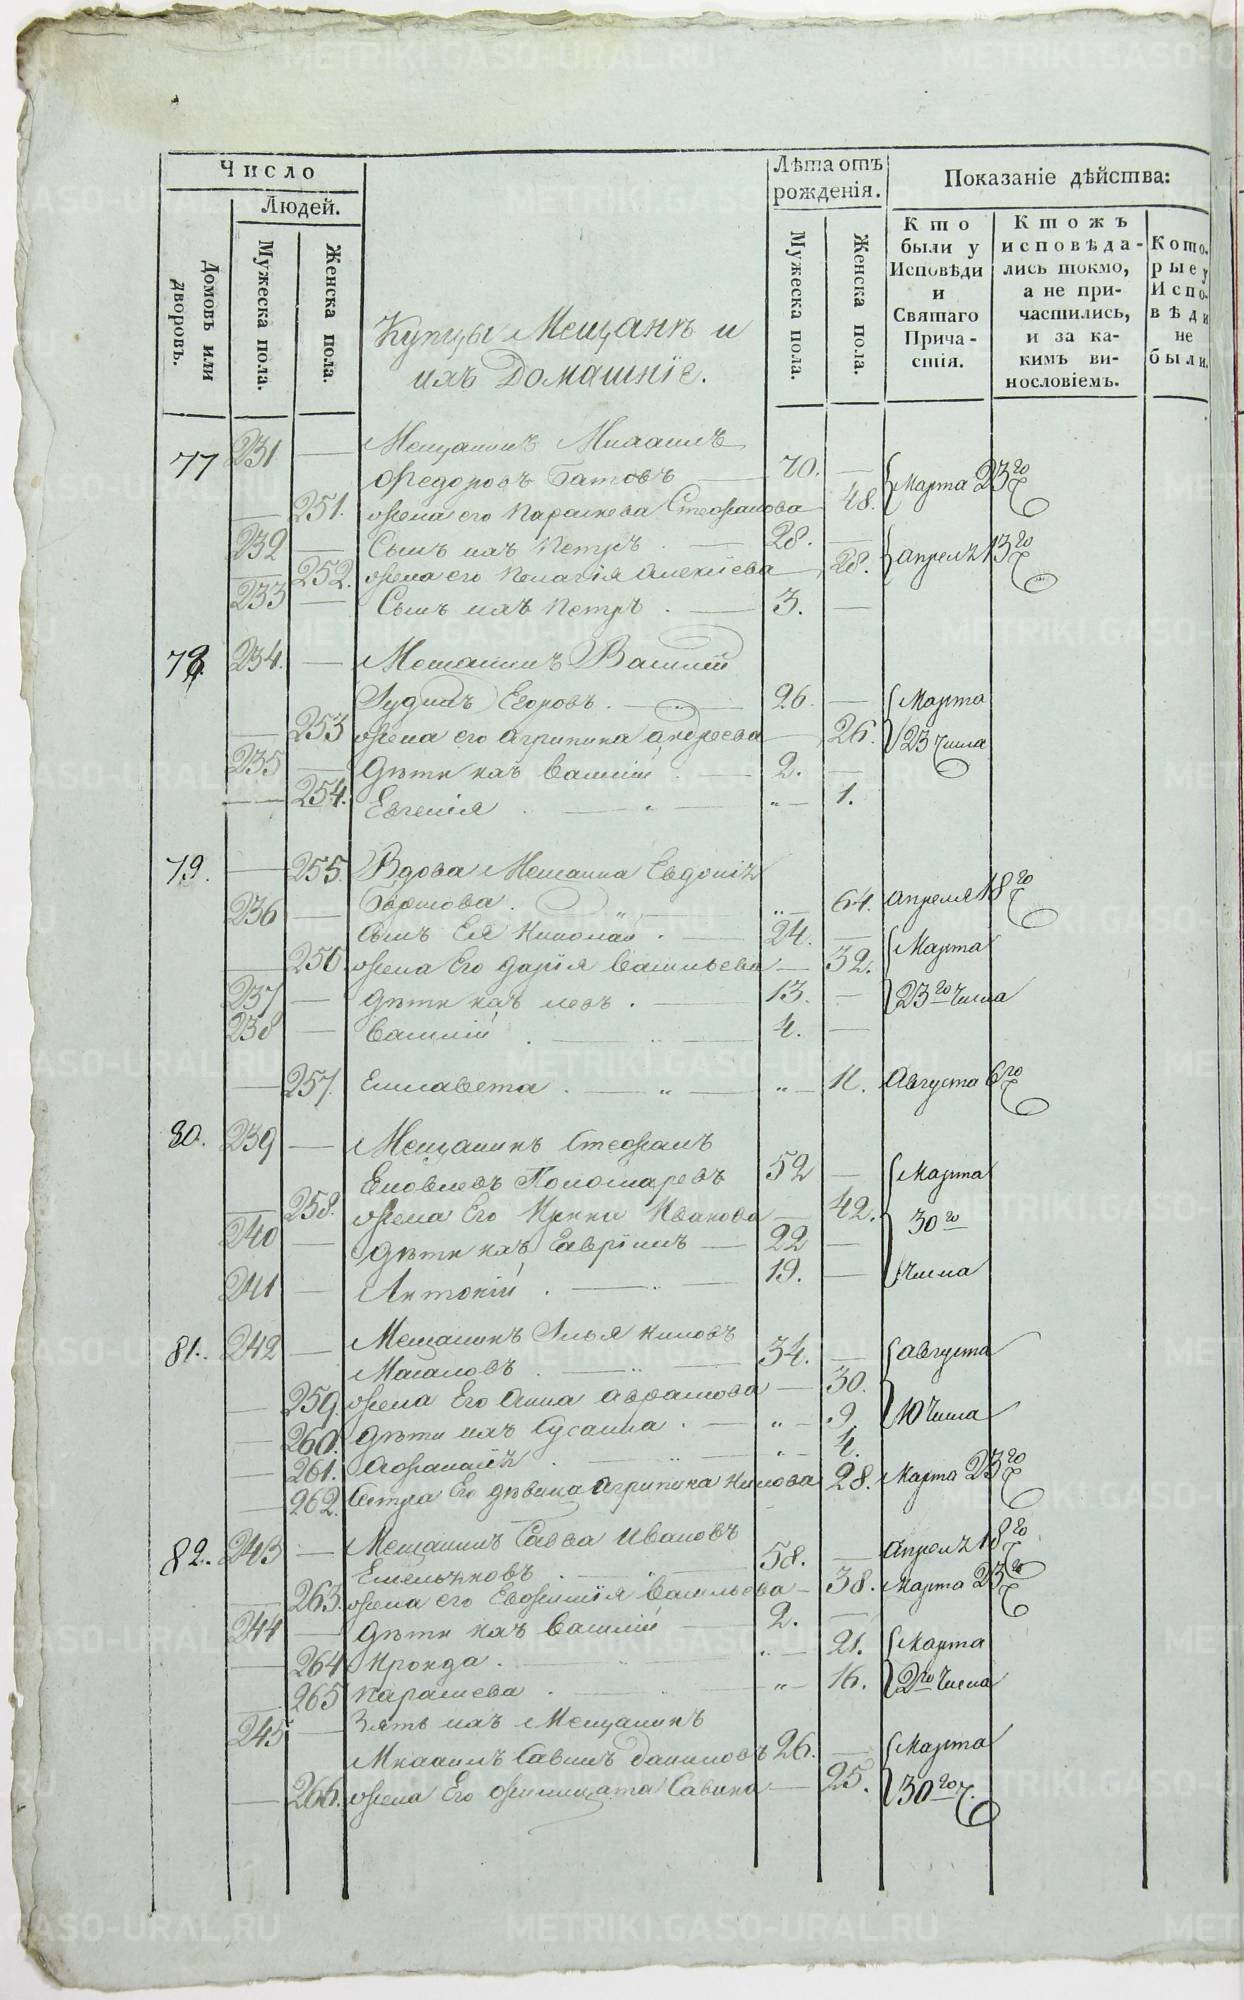 Число
Людей.
Лѣта отъ рожденія.
Показаніе дѣйства:
Домовъ или дворовъ.
Мужеска пола.
Женска пола.
Купцы Мещанѣ и
ихъ Домашніе.
Мужеска пола.
Женска пола.
Кто были у Исповѣди и Святаго Причастія.
Ктожъ исповѣдались токмо, а не причастились, и за какимъ винословіемъ.
Которые у Исповѣди не были.
77 231 — Мещанинъ Михаилъ
Федоровъ Батовъ — 70. —
— 251. жена его Параскева Стефанова 48. Марта 23го Ч
232 — Сынъ ихъ Петръ . — 28. —
— 252. жена его Пелагія Алексіева — 28. апреля 13го Ч
233 — Сынъ ихъ Петръ . — 3. —
78. 234. — Мещанинъ Василій
Егоровъ . — 26. — Марта
— 253 жена его Агрипина Андреева — 26. 23 Числа
235 — Дѣти ихъ Василій . — 2. —
— 254. Евгенія . — „ — „ — 1.
79. — 255. Вдова Мещанка Евдокія
. — „ — 64. апреля 18го Ч
236 — Сынъ Ея Николай . — 24. — Марта
— 256 жена Его Дарія Васильева — 32. 23го Числа
237 — Дѣти ихъ Левъ . — 13. —
238 — Василій . — 4. —
— 257. Елисавета . — „ — „ — 11. Августа 6го Ч
80. 239 — Мещанинъ Стефанъ
Яковлевъ Пономаревъ 52 — Марта
— 258. жена Его Ирина Иванова — 42. 30го
240 — Дѣти ихъ Гавріилъ — 22 —
241 — Антоній . — 19. — Числа
81. 242 — Мещанинъ Илья
. — 34. — августа
— 259. жена Его Анна Аврамова — 30. 10 Числа
— 260. Дѣти ихъ Сусанна . — „ — 9
— 261. . — „ — 4.
— 262. Сестра Его дѣвица Агрипина 28. Марта 23го Ч
82. 243 — Мещанинъ Савва Ивановъ
Емельяновъ . — 58. — Апреля 18го Ч
— 263. жена его Евфимія Васильева — 38. Марта 23го Ч
244 — Дѣти ихъ Василій — 2. —
— 264 . — „ — 21. Марта
— 265 Параскева . — „ — 16. 2го Числа
245 — Зять ихъ Мещанинъ
Михаилъ Савинъ Даниловъ 26. — Марта
— 266. жена Его Савина — 25. 30го Ч.
METRIKI.GASO-URAL.RU